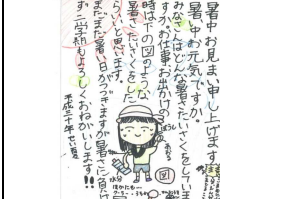 暑中お見まい申し上げます
暑い中お元気ですか。
みなさんはどんな暑さたいさくをしていま
すか。お仕事、お出かけの
時は下の図のような
暑さたいさくをした
らいいと思います。
まだまだ暑い日がつづきますが暑さに負け
ず二学期もよろしくおねがいします!!
平成三十年せい夏
ぼうし
図
水分